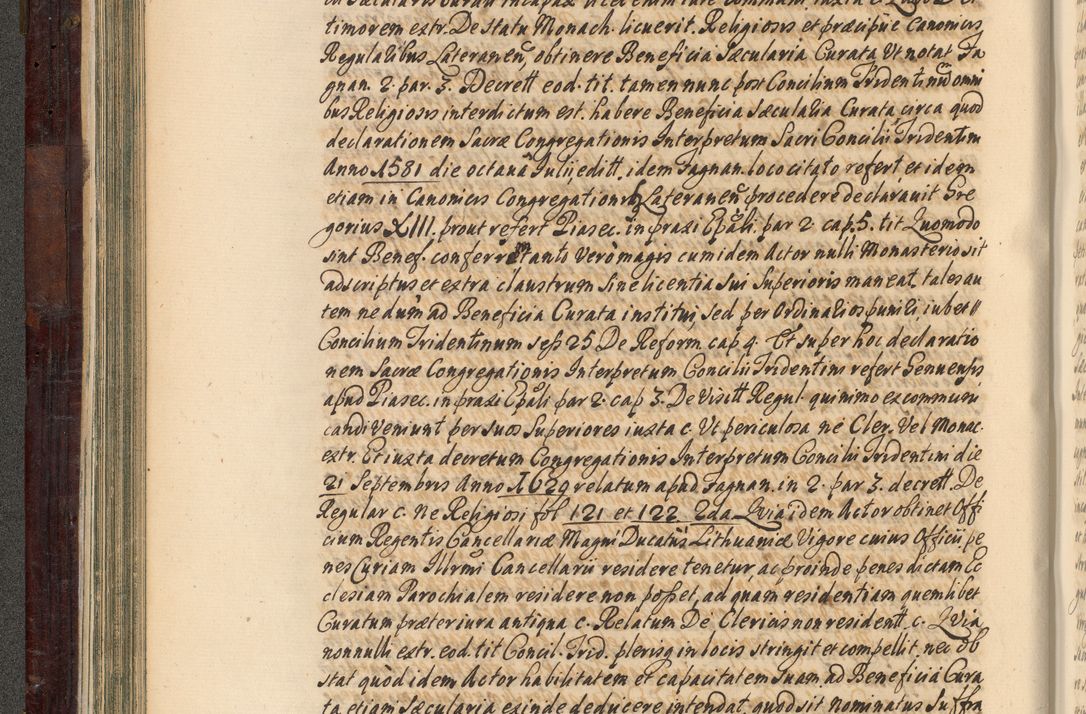 timorem extr. De Statu Monach. licuerit. Religiosis et præcipue Canonicis
Regularibus Lateranen, obtinere Beneficia Sæcularia Curata, Ut notat Fa
gnan. 2. par. 3. Decrett eod. tit. tamen nunc post Concilium Tridentinum omni
bus Religiosis interdictum est. habere Beneficia Sæcularia Curata circa quod
declarationem Sacræ Congregationis Interpretum Sacri Concilii Tridentini
Anno 1581 die octaua Julii, editt. idem Fagnan. loco citato refert, et idem
etiam in Canonicis Congregationis Lateranen procedere declarauit Gre
gorius XIII. prout refert Piasec. in praxi Epali. par 2 cap. 5. tit Quomodo
sint Benef. conferr tanto Vero magis cum idem Actor nulli Monasterio sit
adscriptus et extra claustrum Sine licentia Sui Superioris maneat, tales au
tem nedum ad Beneficia Curata institui, Sed per Ordinarios puniri, iubet
Concilium Tridentinum Sess 25 De Reform cap 4. Et Super hoc declaratio
nem Sacræ Congregationis Interpretum Concilii Tridentini refert Genuensis
apud Piasec. in praxi Epali par 2. cap 3. De Visitt Regul. quinimo excommuni
candi veniunt per suos Superiores iuxta c. Ut periculosa ne Cler. Vel Monac.
extr. Et iuxta decretum Congregationis Interpretum Concilii Tridentini die
21 Septembris Anno 1629 relatum apud Fagnan. in 2. par 3. decrett. De
Regular c. Ne Religiosi fol 121 et 122 2da Quia idem Actor obtinet Offi
cium Regentis Cancellariæ Magni Ducatus Lithuaniæ Vigore cuius Officii pe
nes Curiam Illrmi Cancellarii residere tenetur, ac proinde penes dictam Ec
clesiam Parochialem residere non posset, ad quam residentiam quemlibet
Curatum præter iura antiqua c. Relatum De Clericis non resident. c. Quia
nonnulli extr. eod. tit Concil. Trid. plerisq in locis stringit et compellit, nec ob
stat quod idem Actor habilitatem et capacitatem Suam ad Beneficia Cura
ta etiam Sæcularia exinde deducere intendat, quod sit nominatus Suffra